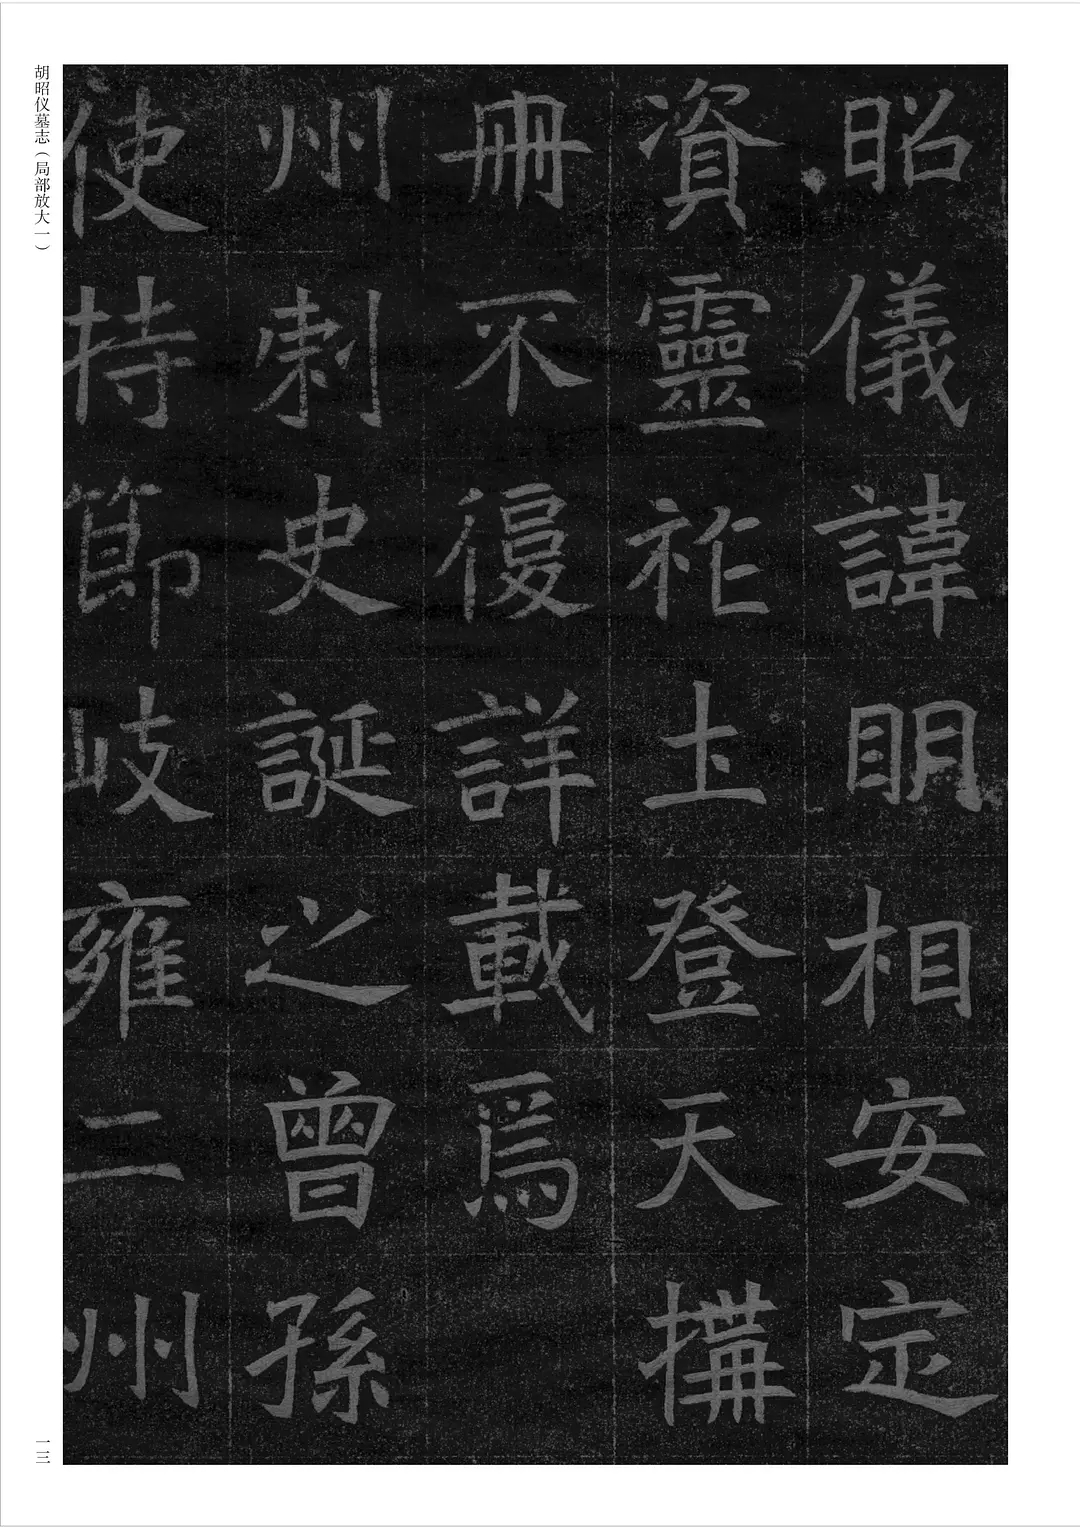 昭儀諱明相安定
資靈祚土登天搆
冊不復詳載爲
州刺史誕之曾孫
使持節岐雍二州
胡昭仪墓志（局部放大一）
一三